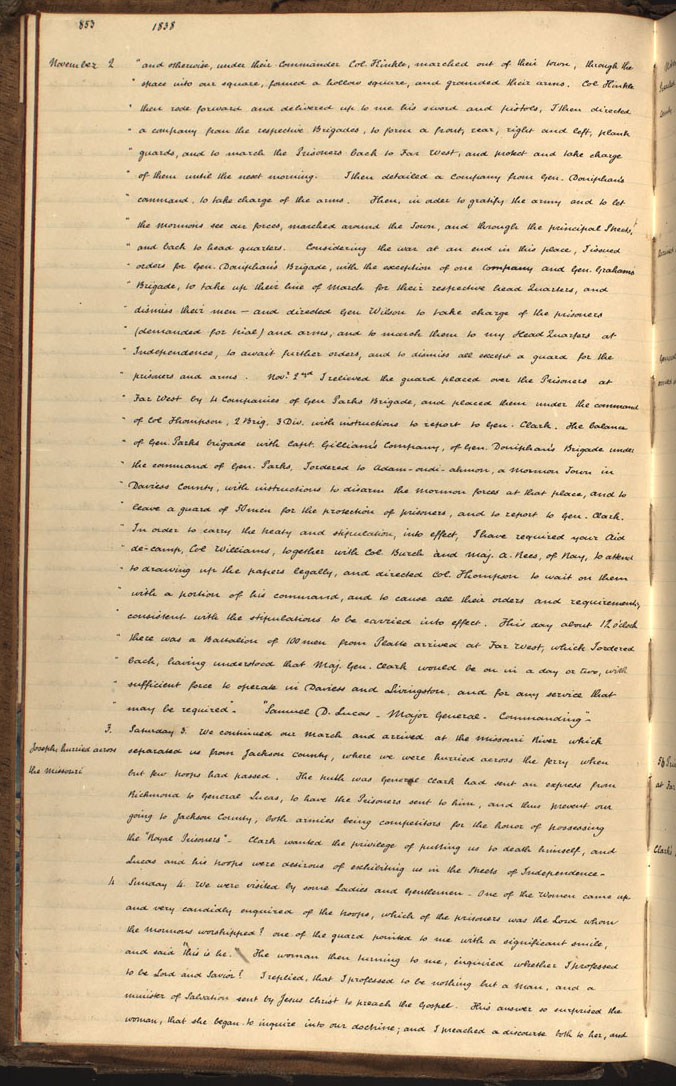 853 1838
November 2 "and otherwise, under their Commander Col. Hinkle, marched out of their town, through the
" space into our square, formed a hollow square, and grounded their arms. Col Hinkle
" then rode forward and delivered up to me his sword and pistols, I then directed
" a company from the respective Brigades, to form a front, rear, right and left, flank
" guards, and to march the Prisoners back to Far West, and protect and take charge
" of them until the next morning. I then detailed a Company from Gen. Doniphan's
" command, to take charge of the arms. Then, in order to gratify the army and to let
" the mormons see our forces, marched around the Town, and through the principal Streets,
" and back to head quarters. Considering the war at an end in this place, I issued
" orders for Gen. Doniphan's Brigade, with the exception of one company and Gen. Grahams
" Brigade, to take up their line of March for their respective head Quarters, and
" dismiss their men — and directed Gen Wilson to take charge of the prisoners
" (demanded for trial) and arms, and to march them to my Head Quarters at
" Independence, to await further orders, and to dismiss all except a guard for the
" prisoners and arms. Novr. 2nd I relieved the guard placed over the Prisoners at
" Far West by 4 Companies of Gen Parks Brigade, and placed them under the command
" of Col Thompson, 2 Brig. 3 Div. with instructions to report to Gen. Clark. The balance
" of Gen. Parks brigade with Capt. Gilliam's Company, of Gen. Doniphan's Brigade under
" the command of Gen. Parks, I ordered to Adam-ondi-ahmon, a Mormon Town in
" Daviess County, with instructions to disarm the Mormon forces at that place, and to
" leave a guard of 50 men for the protection of prisoners, and to report to Gen. Clark.
" In order to carry the treaty and stipulation, into effect, I have required your Aid
" de-camp, Col Williams, together with Col. Burch and Maj. A. Rees, of Ray, to attend
" to drawing up the papers legally, and directed Col. Thompson to wait on them
" with a portion of his command, and to cause all their orders and requirements,
" consistent with the stipulations to be carried into effect. This day about 12 o'clock
" there was a Battalion of 100 men from Platte arrived at Far West, which I ordered
" back, having understood that Maj. Gen. Clark would be on in a day or two, with
" sufficient force to operate in Daviess and Livingston, and for any service that
" may be required". "Samuel D. Lucas - Major General - Commanding"-
3. Saturday 3. We continued our march and arrived at the Missouri River which
Joseph, hurried across separated us from Jackson County, where we were hurried across the ferry when
the Missouri but few troops had passed. The truth was General Clark had sent an express from
Richmond to General Lucas, to have the Prisoners sent to him, and thus prevent our
going to Jackson County, both armies being competitors for the honor of possessing
the "Royal Prisoners"- Clark wanted the privilege of putting us to death himself, and
Lucas and his troops were desirous of exhibiting us in the Streets of Independence-
4 Sunday 4. We were visited by some Ladies and Gentlemen - One of the Women came up
and very candidly enquired of the troops, which of the prisoners was the Lord whom
the Mormons worshipped? one of the guard pointed to me with a significant smile,
and said "this is he. The woman then turning to me, enquired whether I professed
to be Lord and Savior? I replied, that I professed to be nothing but a Man, and a
minister of Salvation sent by Jesus Christ to preach the Gospel. This answer so surprised the
woman, that she began to inquire into our doctrine; and I preached a discourse both to her, and